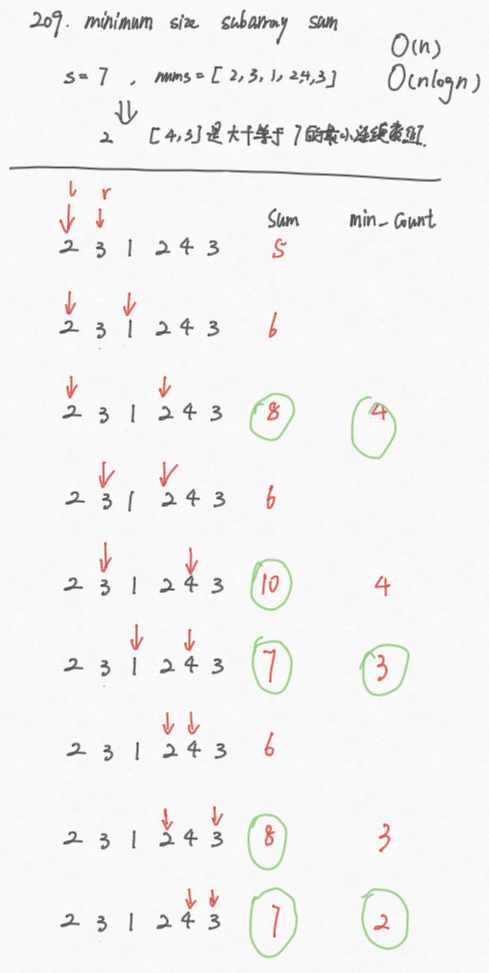 209. minimum size subarray sum
O(n)
s = 7 , nums = [ 2, 3, 1, 2,4,3 ]
O(nlogn)
⇓
2 [ 4, 3 ] 是大于等于 7 的最小连续
l r
Sum min_count
2 3 1 2 4 3 5
2 3 1 2 4 3 6
2 3 1 2 4 3 8 4
2 3 1 2 4 3 6
2 3 1 2 4 3 10 4
2 3 1 2 4 3 7 3
2 3 1 2 4 3 6
2 3 1 2 4 3 8 3
2 3 1 2 4 3 7 2